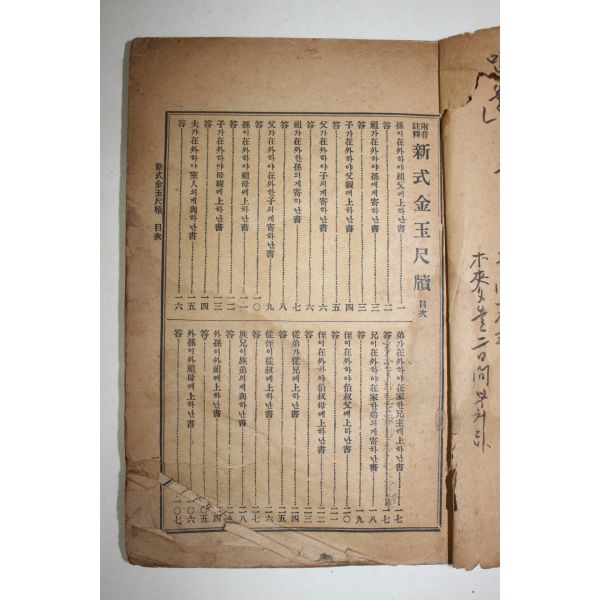 附音
註釋
新式金玉尺牘 目次
孫이在外하야祖父께上하난書 一
答 二
祖가在外하야孫에게寄하난書 三
答 三
子가在外하야父親께上하난書 四
答 五
父가在外하야子의게寄하난書 六
答 六
祖가在外한孫의게寄하난書 七
答 八
父가在外한子의게寄하난書 九
答 一〇
孫이在外하야祖母께上하난書 一一
答 一二
子가在外하야母親께上하난書 一三
答 一四
夫가在外하야室人의게與하난書 一五
答 一六
弟가在外하야在家한兄主께上하난書 一七
答 一七
兄이在外하야在家한弟의게寄하난書 一八
答 一九
侄이在外하야伯叔父께上하난書 二〇
答
侄이在外하야伯叔母께上하난書
答
從弟가從兄께上하난書 二四
答 二五
從侄이從叔께上하난書 二六
答 二七
族兄이族弟의게與하난書
答
外孫이外祖께上하난書
答
外孫이外祖母께上하난書
答
新式金玉尺牘 目次